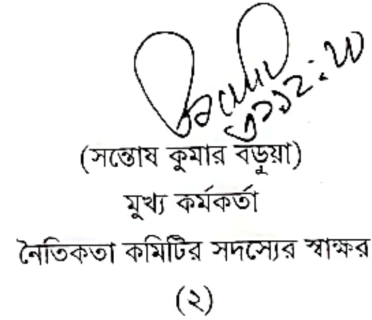 (সন্তোষ কুমার বড়ুয়া)
মুখ্য কর্মকর্তা
নৈতিকতা কমিটির সদস্যের স্বাক্ষর
(২)